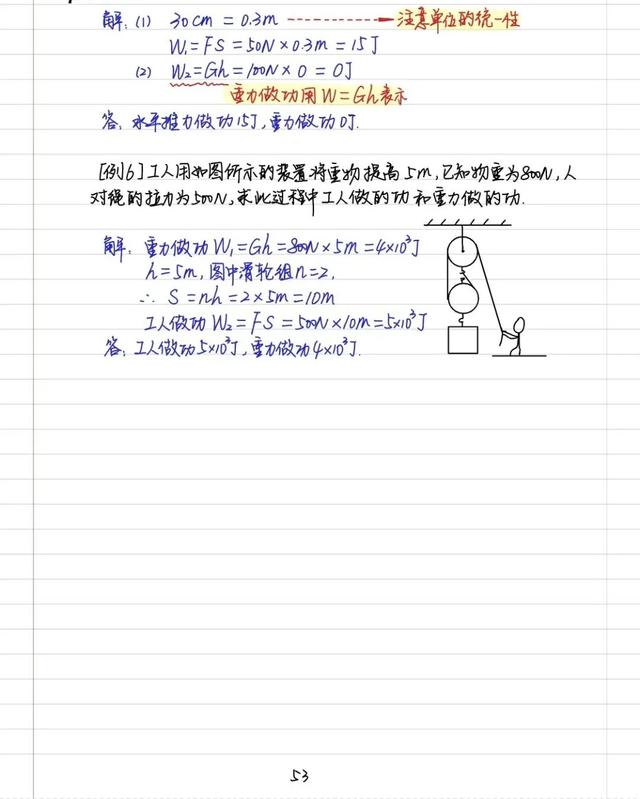 解：(1) 30cm = 0.3m → 注意单位的统一性
W₁=FS=50N×0.3m=15J
(2) W₂=Gh=100N×0=0J
重力做功用W=Gh表示
答：水平推力做功15J，重力做功0J.
[例6]工人用如图所示的装置将重物提高5m，已知物重为800N，人
对绳的拉力为500N，求此过程中工人做的功和重力做的功.
解：重力做功W₁=Gh=800N×5m=4×10³J
h=5m，图中滑轮组n=2，
∴ S=nh=2×5m=10m
工人做功W₂=FS=500N×10m=5×10³J
答：工人做功5×10³J，重力做功4×10³J.
53